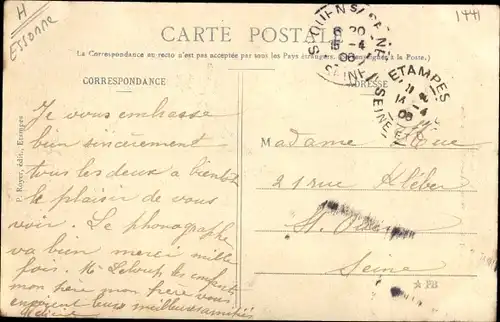 H
Essonne
1441
CARTE POSTALE
(La Correspondance au recto n'est pas acceptée par tous les Pays étrangers. à la Poste.)
CORRESPONDANCE
ADRESSE
Je vous embrasse
bien sincèrement
tous les deux a bientot
le plaisir de vous
voir. Le phonographe
va bien merci mille
fois. Mr Leloup les enfants
mon père mon frère vous
envoient leurs meilleures amitiés
Madame
21 rue Kléber
St. Ouen
Seine
ST OUEN S/SEINE
SEINE
15 -4
06
ETAMPES
SEINE
14 -4
06
P. Royer, édit., Etampes
PB